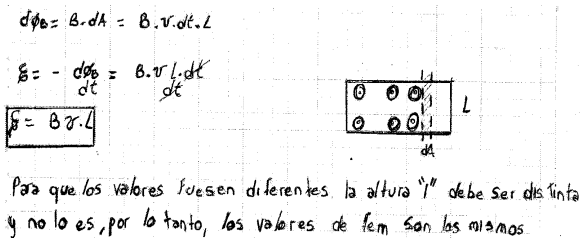 dϕB = B.dA = B.v.dt.L
ε = - dϕB/dt = B.v L.dt/dt
ε = B v.L
L
dA
Para que los valores fuesen diferentes la altura "l" debe ser distinta
y no lo es, por lo tanto, los valores de fem son los mismos